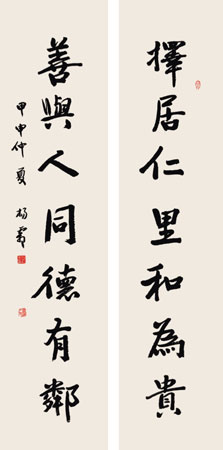 擇居仁里和為貴
善與人同德有鄰
甲申仲夏